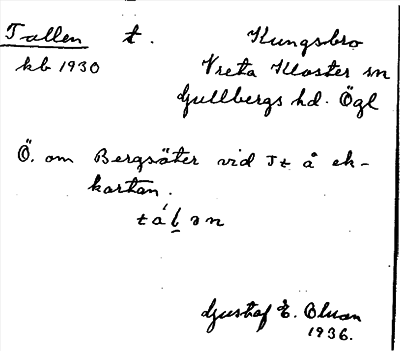 Tallen t. Kungsbro
kb 1930 Vreta Kloster sn
Gullbergs hd. Ögl
Ö. om Bergsäter vid St å ek-
kartan.
tálən
Gustaf E. Olsson
1936.